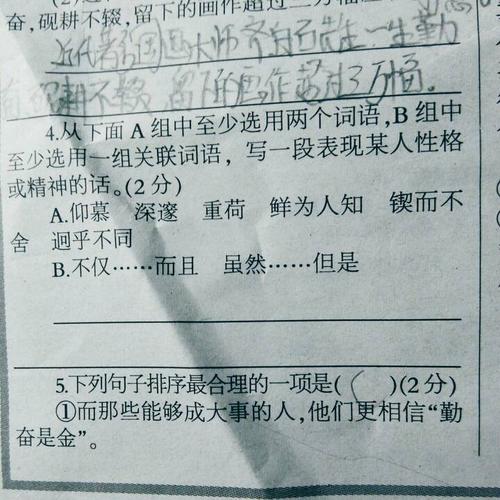 奋,砚耕不辍,留下的画作超过三万幅
近代著名国画大师齐白石先生一生勤
奋砚耕不辍 留下的画作超过3万幅。
4.从下面A组中至少选用两个词语,B组中
至少选用一组关联词语，写一段表现某人性格
或精神的话。(2分)
A.仰慕 深邃 重荷 鲜为人知 锲而不
舍 迥乎不同
B.不仅……而且 虽然……但是
5.下列句子排序最合理的一项是( )(2分)
①而那些能够成大事的人,他们更相信“勤
奋是金”。